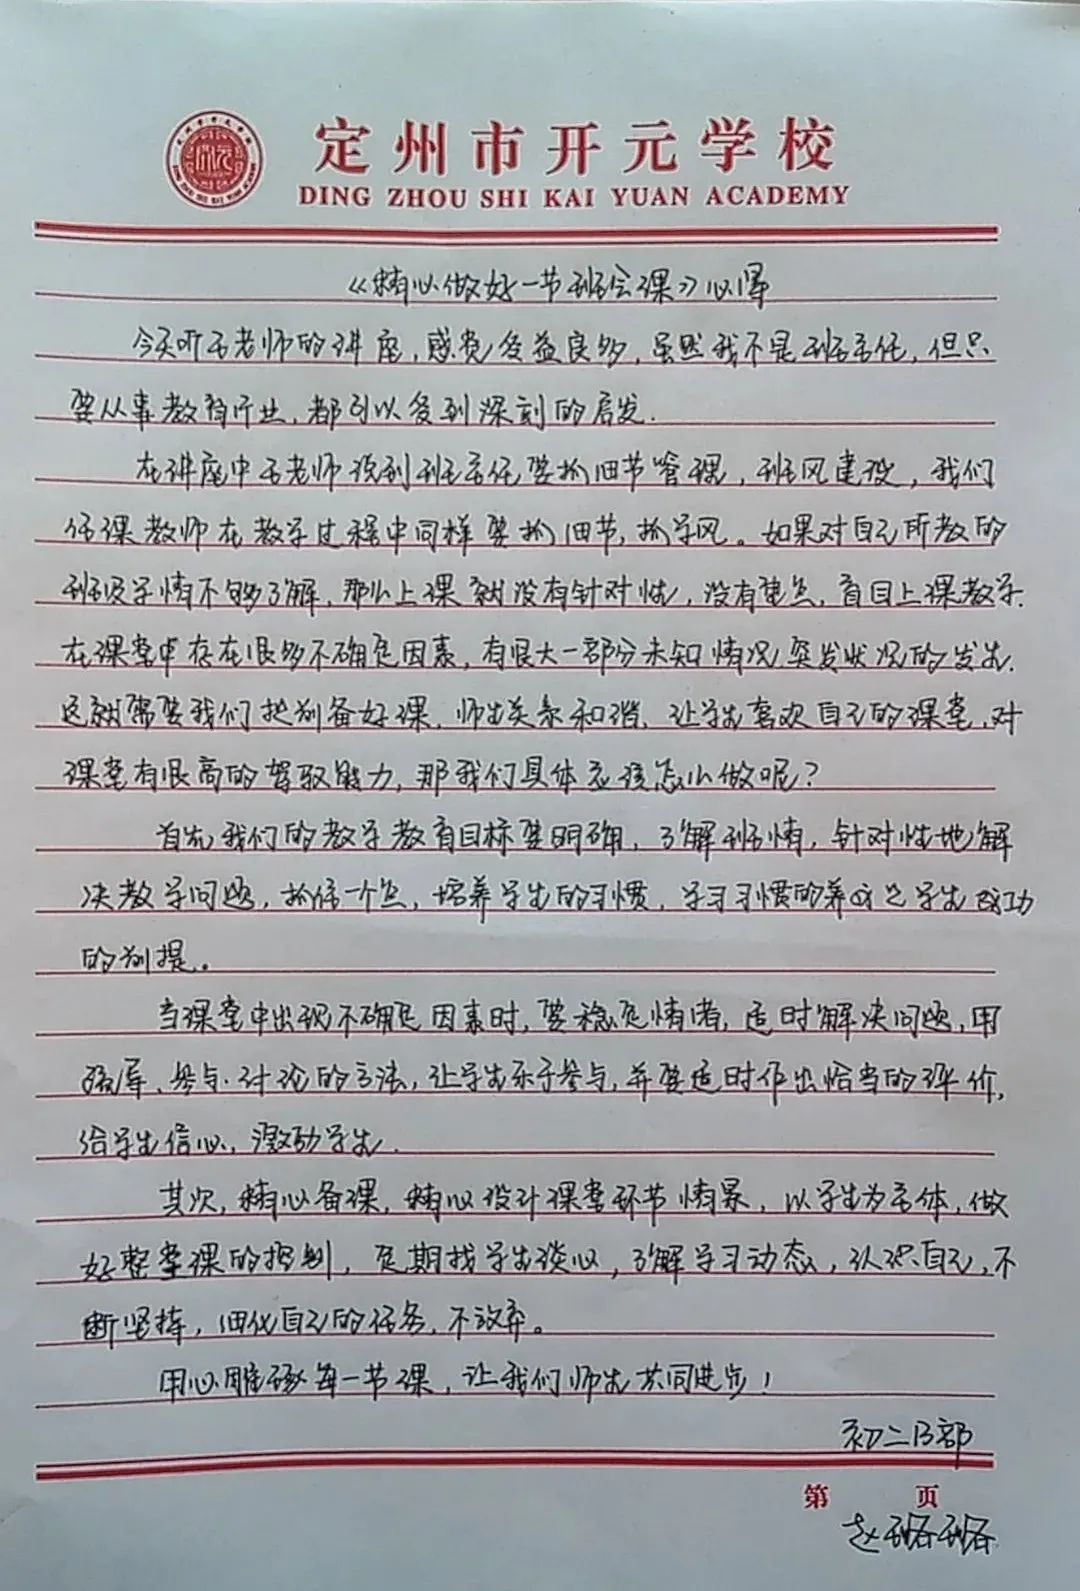 定州市开元学校
DING ZHOU SHI KAI YUAN ACADEMY
《精心做好一节班会课》心得
今天听王老师的讲座,感觉受益良多,虽然我不是班主任,但只
要从事教育行业,都可以受到深刻的启发.
在讲座中王老师谈到班主任要抓细节管理,班风建设,我们
任课教师在教学过程中同样要抓细节,抓学风。如果对自己所教的
班级学情不够了解,那么上课就没有针对性,没有重点,盲目上课教学.
在课堂中存在很多不确定因素,有很大一部分未知情况,突发状况的发生.
这就需要我们提前备好课,师生关系和谐,让学生喜欢自己的课堂,对
课堂有很高的驾驭能力,那我们具体应该怎么做呢?
首先,我们的教学教育目标要明确,了解班情,针对性地解
决教学问题,抓住一个点,培养学生的习惯,学习习惯的养成是学生成功
的前提。
当课堂中出现不确定因素时,要稳定情绪,适时解决问题,用
拓展、参与、讨论的方法,让学生乐于参与,并要适时作出恰当的评价,
给学生信心,激励学生.
其次,精心备课,精心设计课堂环节情景,以学生为主体,做
好整堂课的规划,定期找学生谈心,了解学习动态,认识自己,不
断坚持,细化自己的任务,不放弃。
用心雕琢每一节课,让我们师生共同进步!
初二B部
第 页
赵璐璐